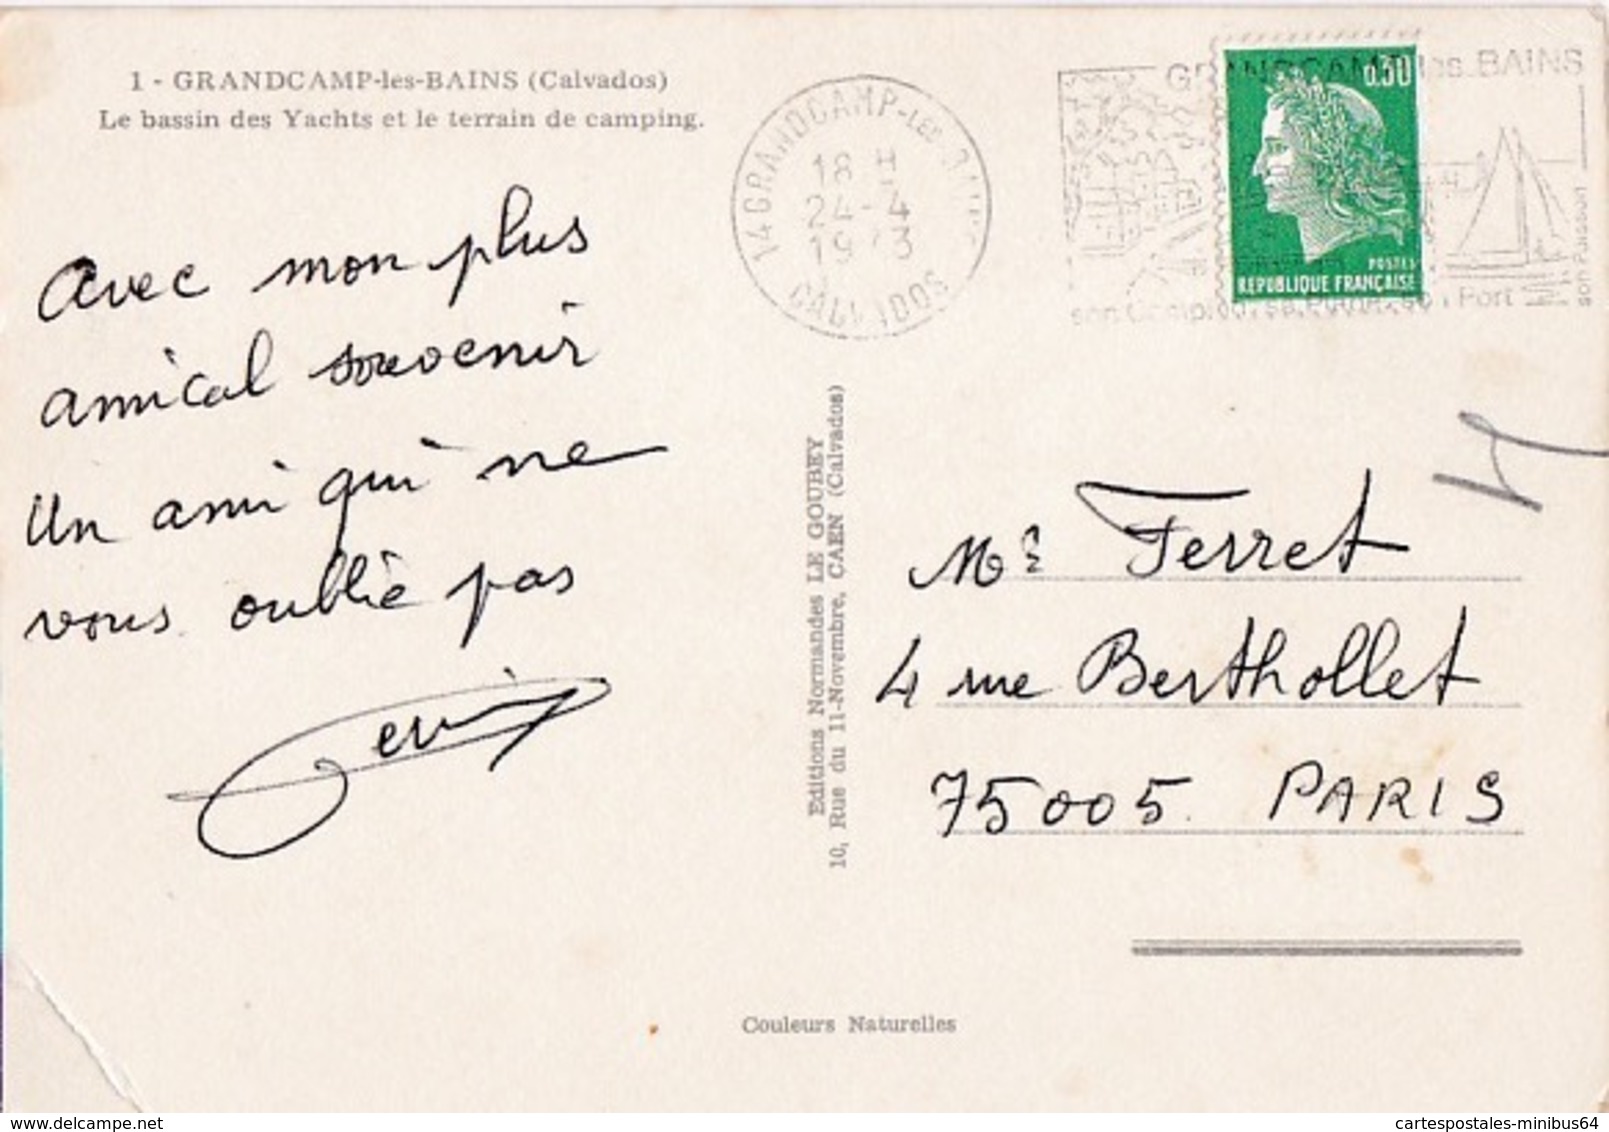 1 - GRANDCAMP-les-BAINS (Calvados)
Le bassin des Yachts et le terrain de camping.
Avec mon plus
amical souvenir
Un ami qui ne
vous oublie pas
14 GRANDCAMP-LES-BAINS
18 H
24-4
1973
CALVADOS
GRANDCAMP-les-BAINS
son Camping, sa Plage, son Port
son Poisson
0,30
POSTES
REPUBLIQUE FRANÇAISE
Editions Normandes LE GOUBEY
10, Rue du 11-Novembre, CAEN (Calvados)
Mr Ferret
4 rue Berthollet
75005 PARIS
Couleurs Naturelles
cartespostales-minibus64